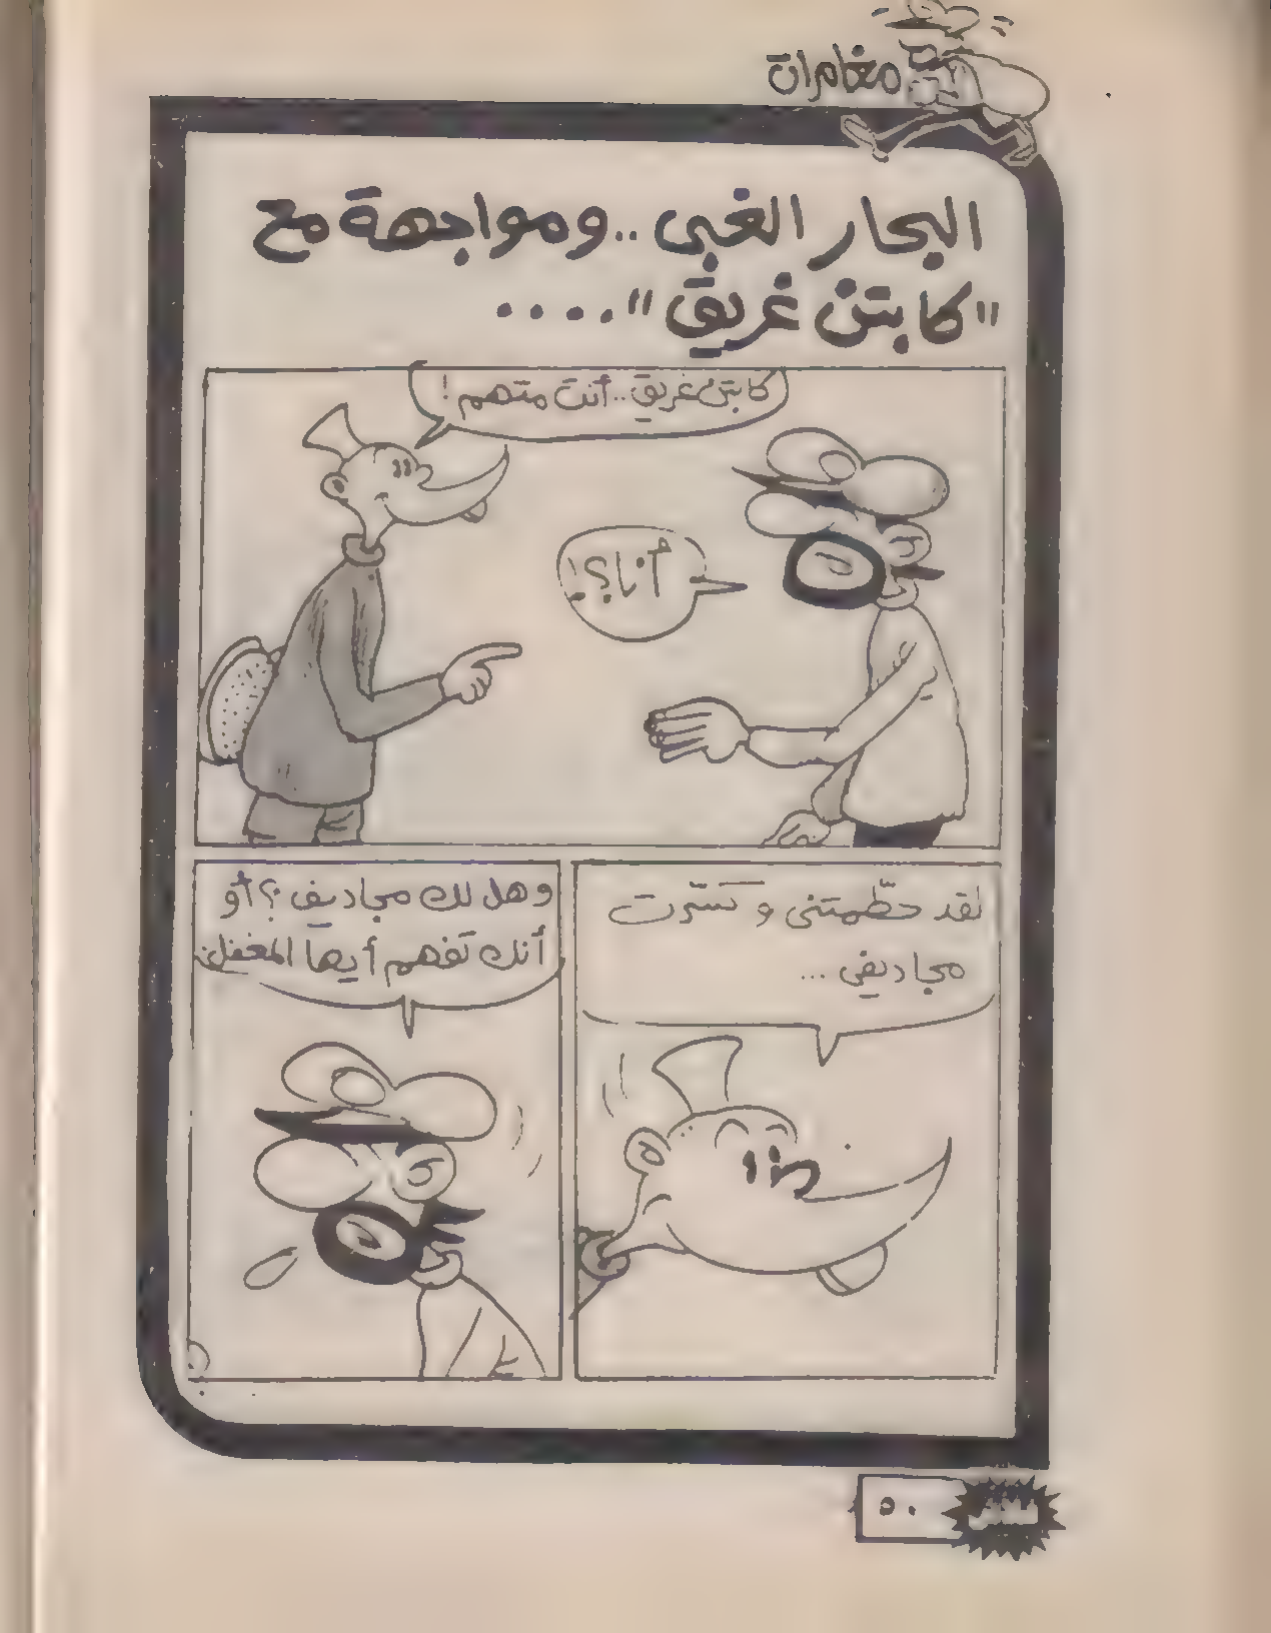 مغامرات
البحار الغبى .. ومواجهة مع
"كابتن غريق" ....
كابتن غريق .. أنت متهم !
أنا؟!
لقد حطّمتنى وكسّرت
مجاديفى ...
وهل لك مجاديف ؟ أو
أنك تفهم أيها المغفل
٥٠